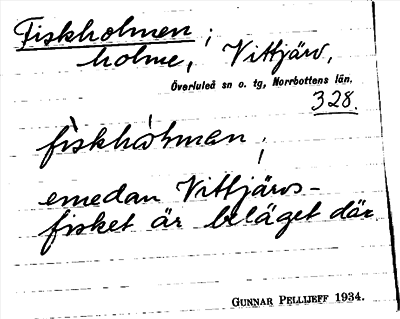 Fiskholmen;
holme, Vittjärv,
Överluleå sn o. tg, Norrbottens län.
328.
fìskhòlmen;
emedan Vittjärvs-
fisket är beläget där.
GUNNAR PELLIJEFF 1934.